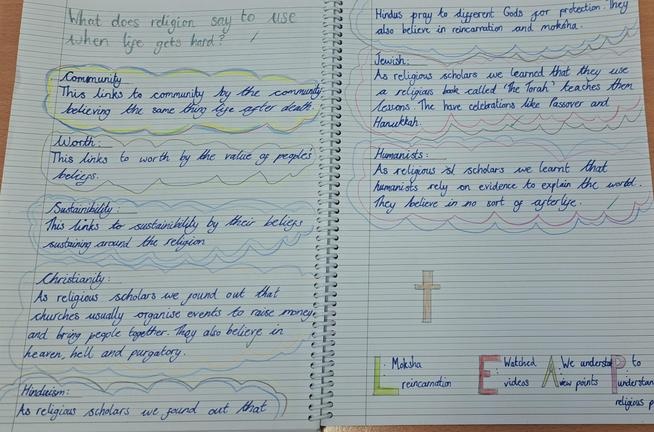 What does religion say to use
when life gets hard?
Community
This links to community by the community
believing the same thing life after death.
Worth:
This links to worth by the value of peoples'
beliefs.
Sustainibility:
This links to sustainibility by their beliefs
sustaining around the religion
Christianity:
As religious scholars we found out that
churches usually organise events to raise money,
and bring people together. They also believe in
heaven, hell and purgatory.
Hinduism:
As religious scholars we found out that
Hindus pray to different Gods for protection. They
also believe in reincarnation and moksha.
Jewish:
As religious scholars we learned that they use
a religious book called 'The Torah' teaches them
lessons. The have celebrations like Passover and
Hanukkah.
Humanists:
As religious scholars we learnt that
humanists rely on evidence to explain the world.
They believe in no sort of afterlife.
L: Moksha
reincarnation
E Watched
videos
A We understand
view points
P to
understand
religious